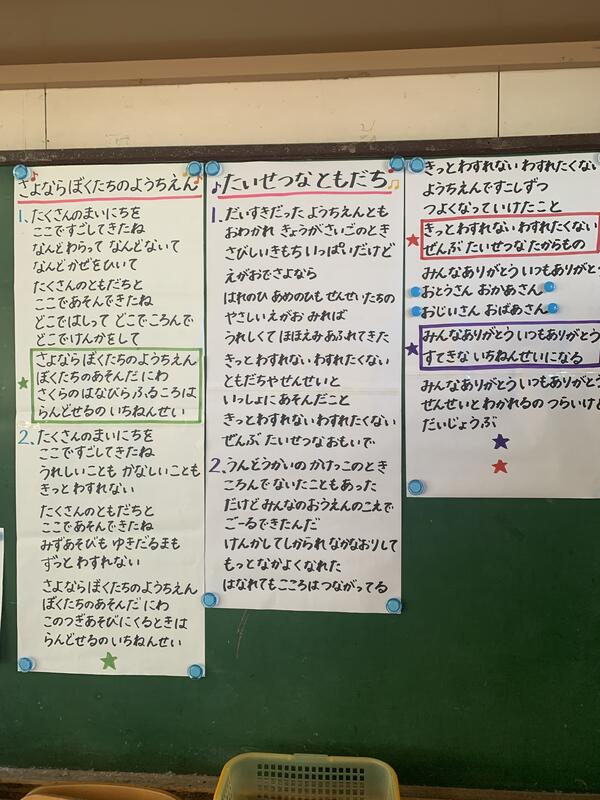 さよならぼくたちのようちえん
1. たくさんのまいにちを
ここですごしてきたね
なんどわらって なんどないて
なんどかぜをひいて
たくさんのともだちと
ここであそんできたね
どこではしって どこでころんで
どこでけんかをして
さよならぼくたちのようちえん
ぼくたちのあそんだにわ
さくらのはなびらふるころは
らんどせるのいちねんせい
2. たくさんのまいにちを
ここですごしてきたね
うれしいことも かなしいことも
きっとわすれない
たくさんのともだちと
ここであそんできたね
みずあそびも ゆきだるまも
ずっとわすれない
さよならぼくたちのようちえん
ぼくたちのあそんだにわ
このつぎあそびにくるときは
らんどせるのいちねんせい
たいせつなともだち
1. だいすきだった ようちえんとも
おわかれ きょうがさいごのとき
さびしいきもち いっぱいだけど
えがおでさよなら
はれのひ あめのひも せんせいたちの
やさしいえがお みれば
うれしくて ほほえみあふれてきた
きっとわすれない わすれたくない
ともだちやせんせいと
いっしょにあそんだこと
きっとわすれない わすれたくない
ぜんぶ たいせつなおもいで
2. うんどうかいの かけっこのとき
ころんで ないたこともあった
だけど みんなのおうえんのこえで
ごーるできたんだ
けんかしてしかられ なかなおりして
もっとなかよくなれた
はなれてもこころはつながってる
きっとわすれない わすれたくない
ようちえんですこしずつ
つよくなっていけたこと
きっとわすれない わすれたくない
ぜんぶ たいせつなたからもの
みんなありがとう いつもありがと
おとうさん おかあさん
おじいさん おばあさん
みんなありがとう いつもありがとう
すてきな いちねんせいになる
みんなありがとう いつもありがとう
せんせいと わかれるの つらいけど
だいじょうぶ